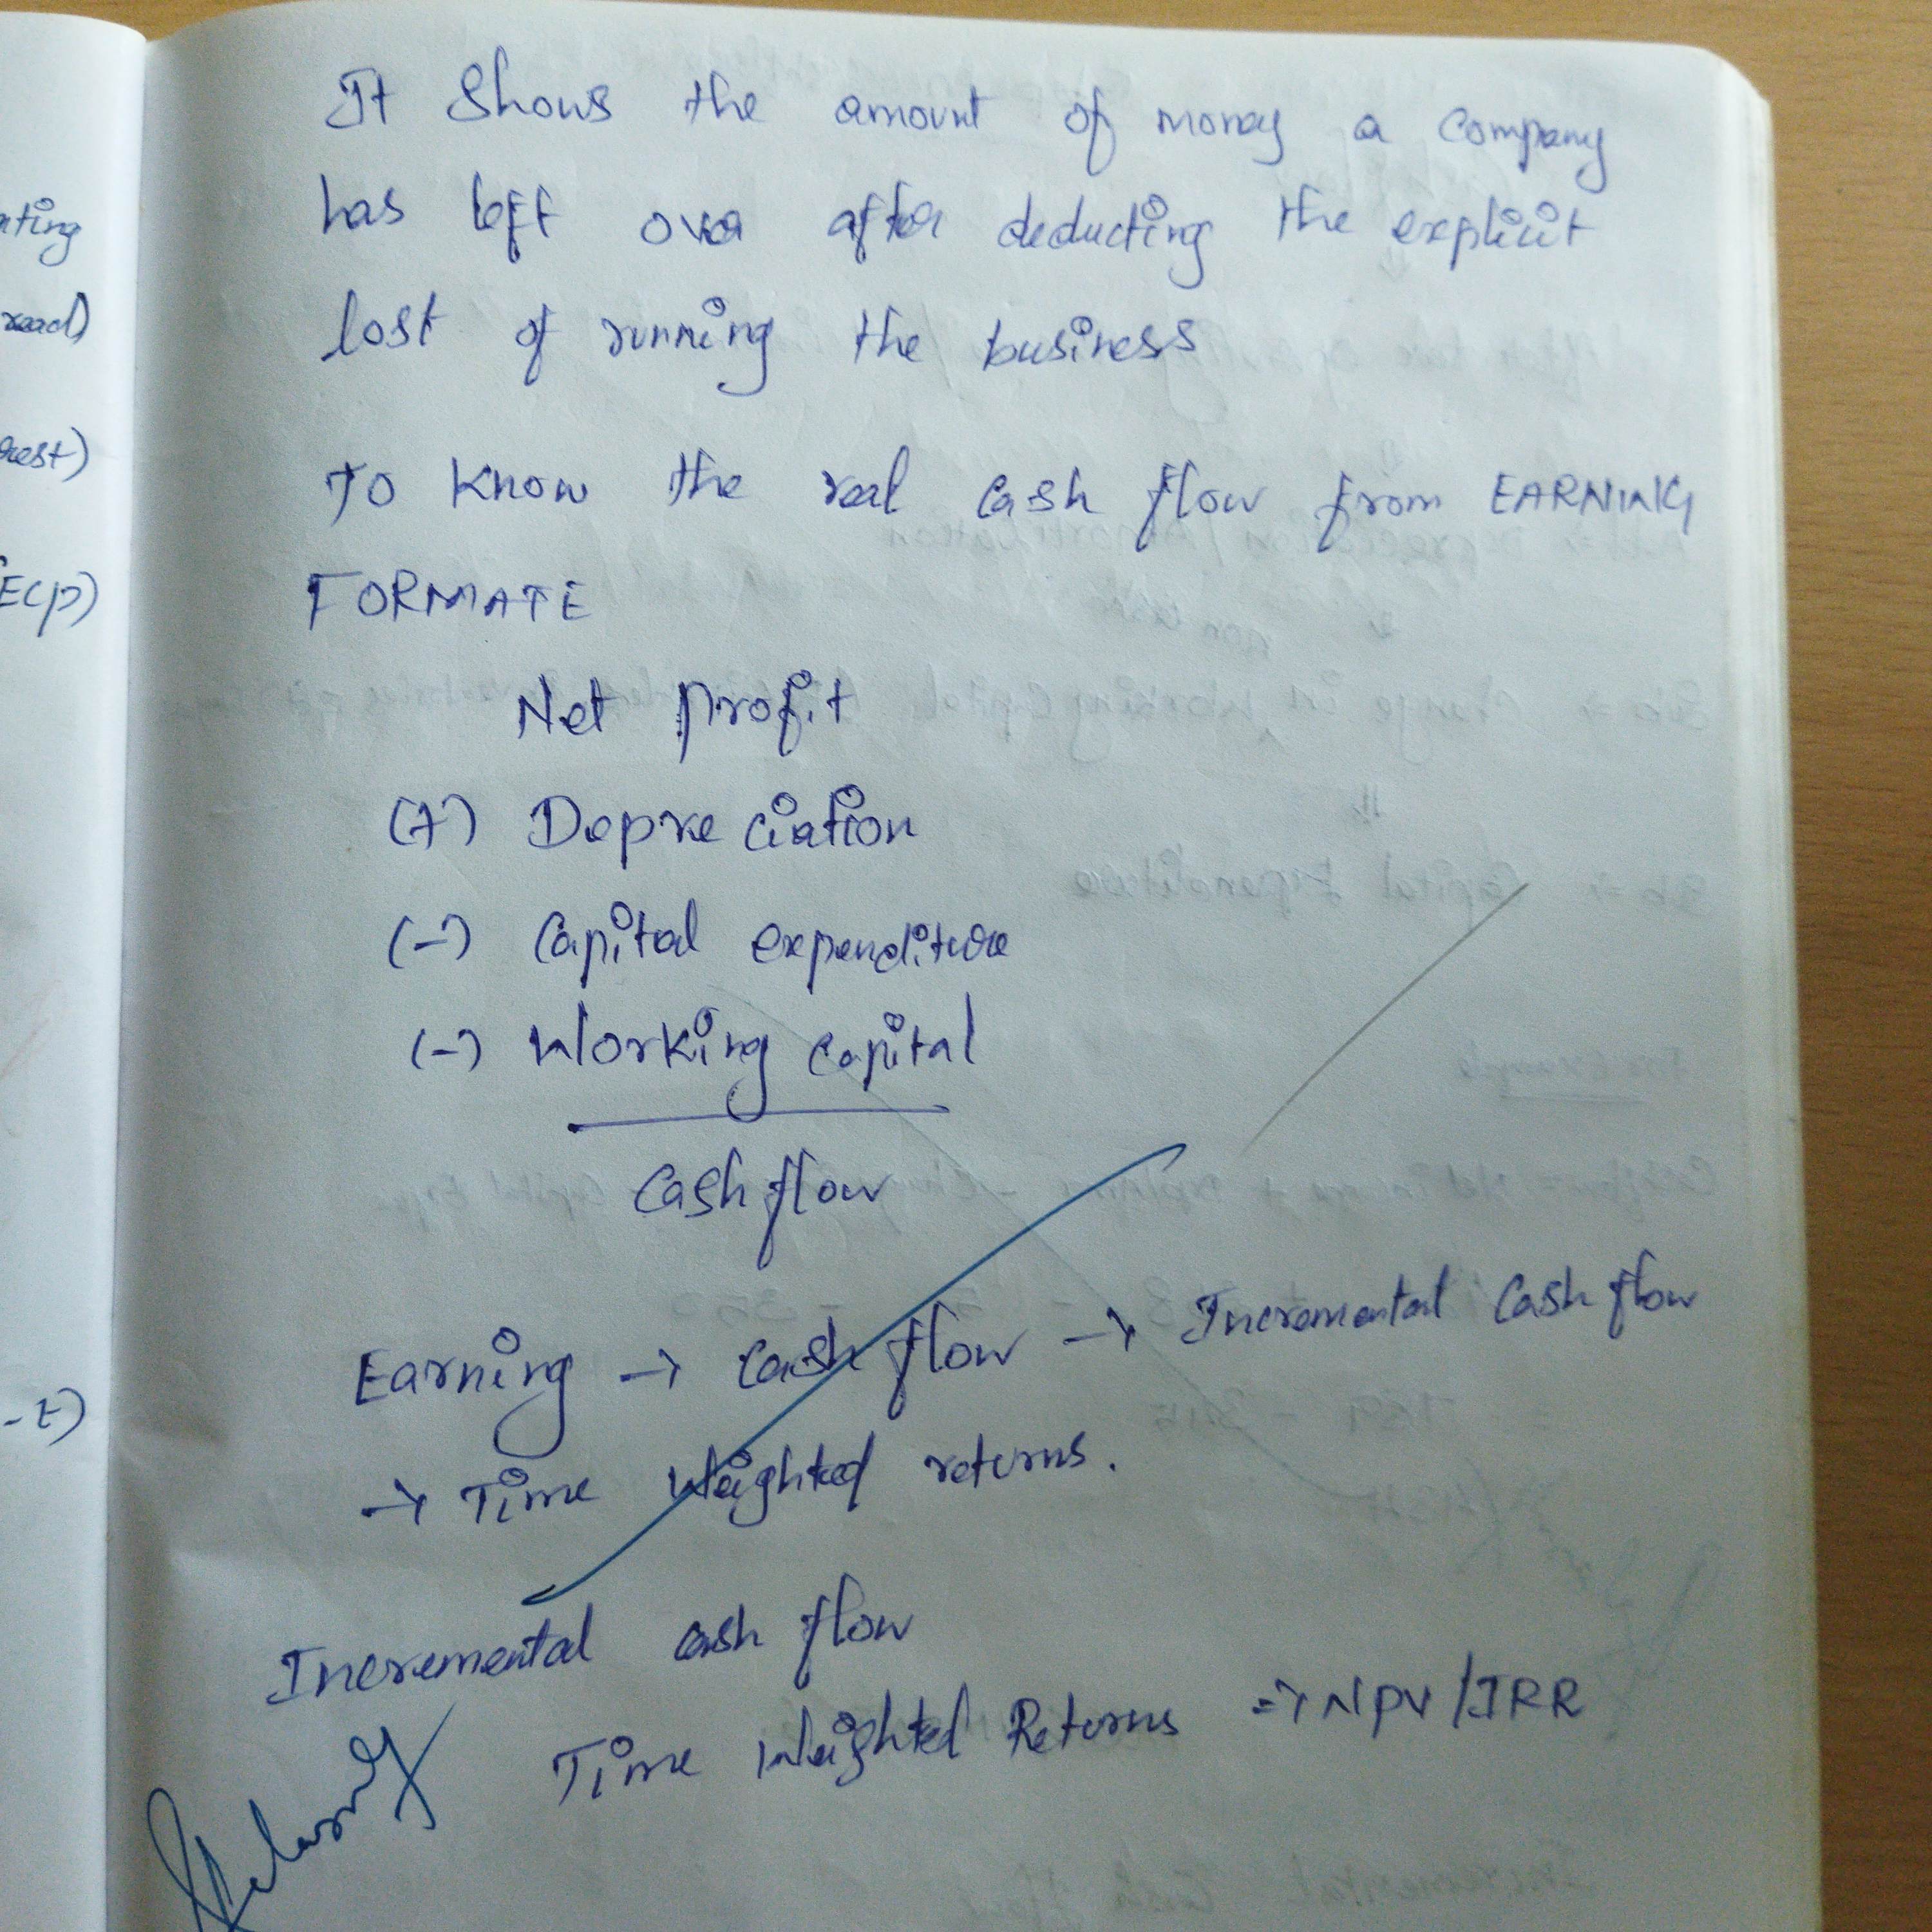 It Shows the amount of money a Company
has left over after deducting the explicit
lost of running the business
To Know the real Cash flow from EARNING
FORMATE
Net Profit
(+) Depreciation
(-) Capital expenditure
(-) Working Capital
Cash flow
Earning → Cash flow → Incremental Cash flow
→ Time Weighted returns.
Incremental cash flow
Time Weighted Returns => NPV/IRR
ating
read)
E(P)
-t)